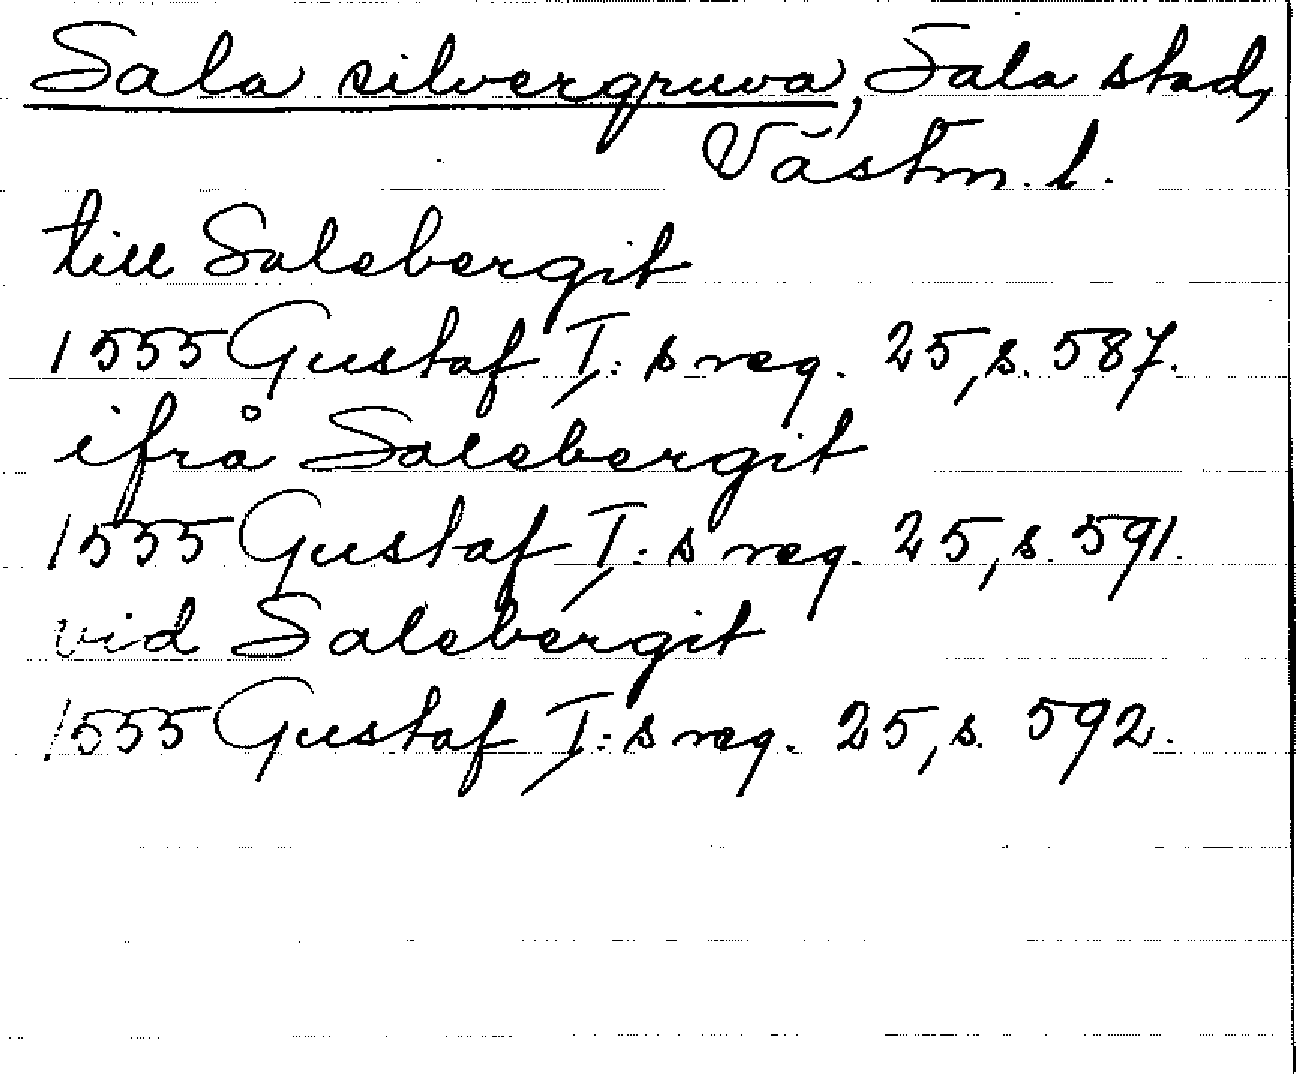 Sala silvergruva, Sala stad,
Västm. l.
till Salebergit
1555 Gustaf I:s reg. 25, s. 587.
ifrå Salebergit
1555 Gustaf I:s reg. 25, s. 591.
vid Salebergit
1555 Gustaf I:s reg. 25, s. 592.